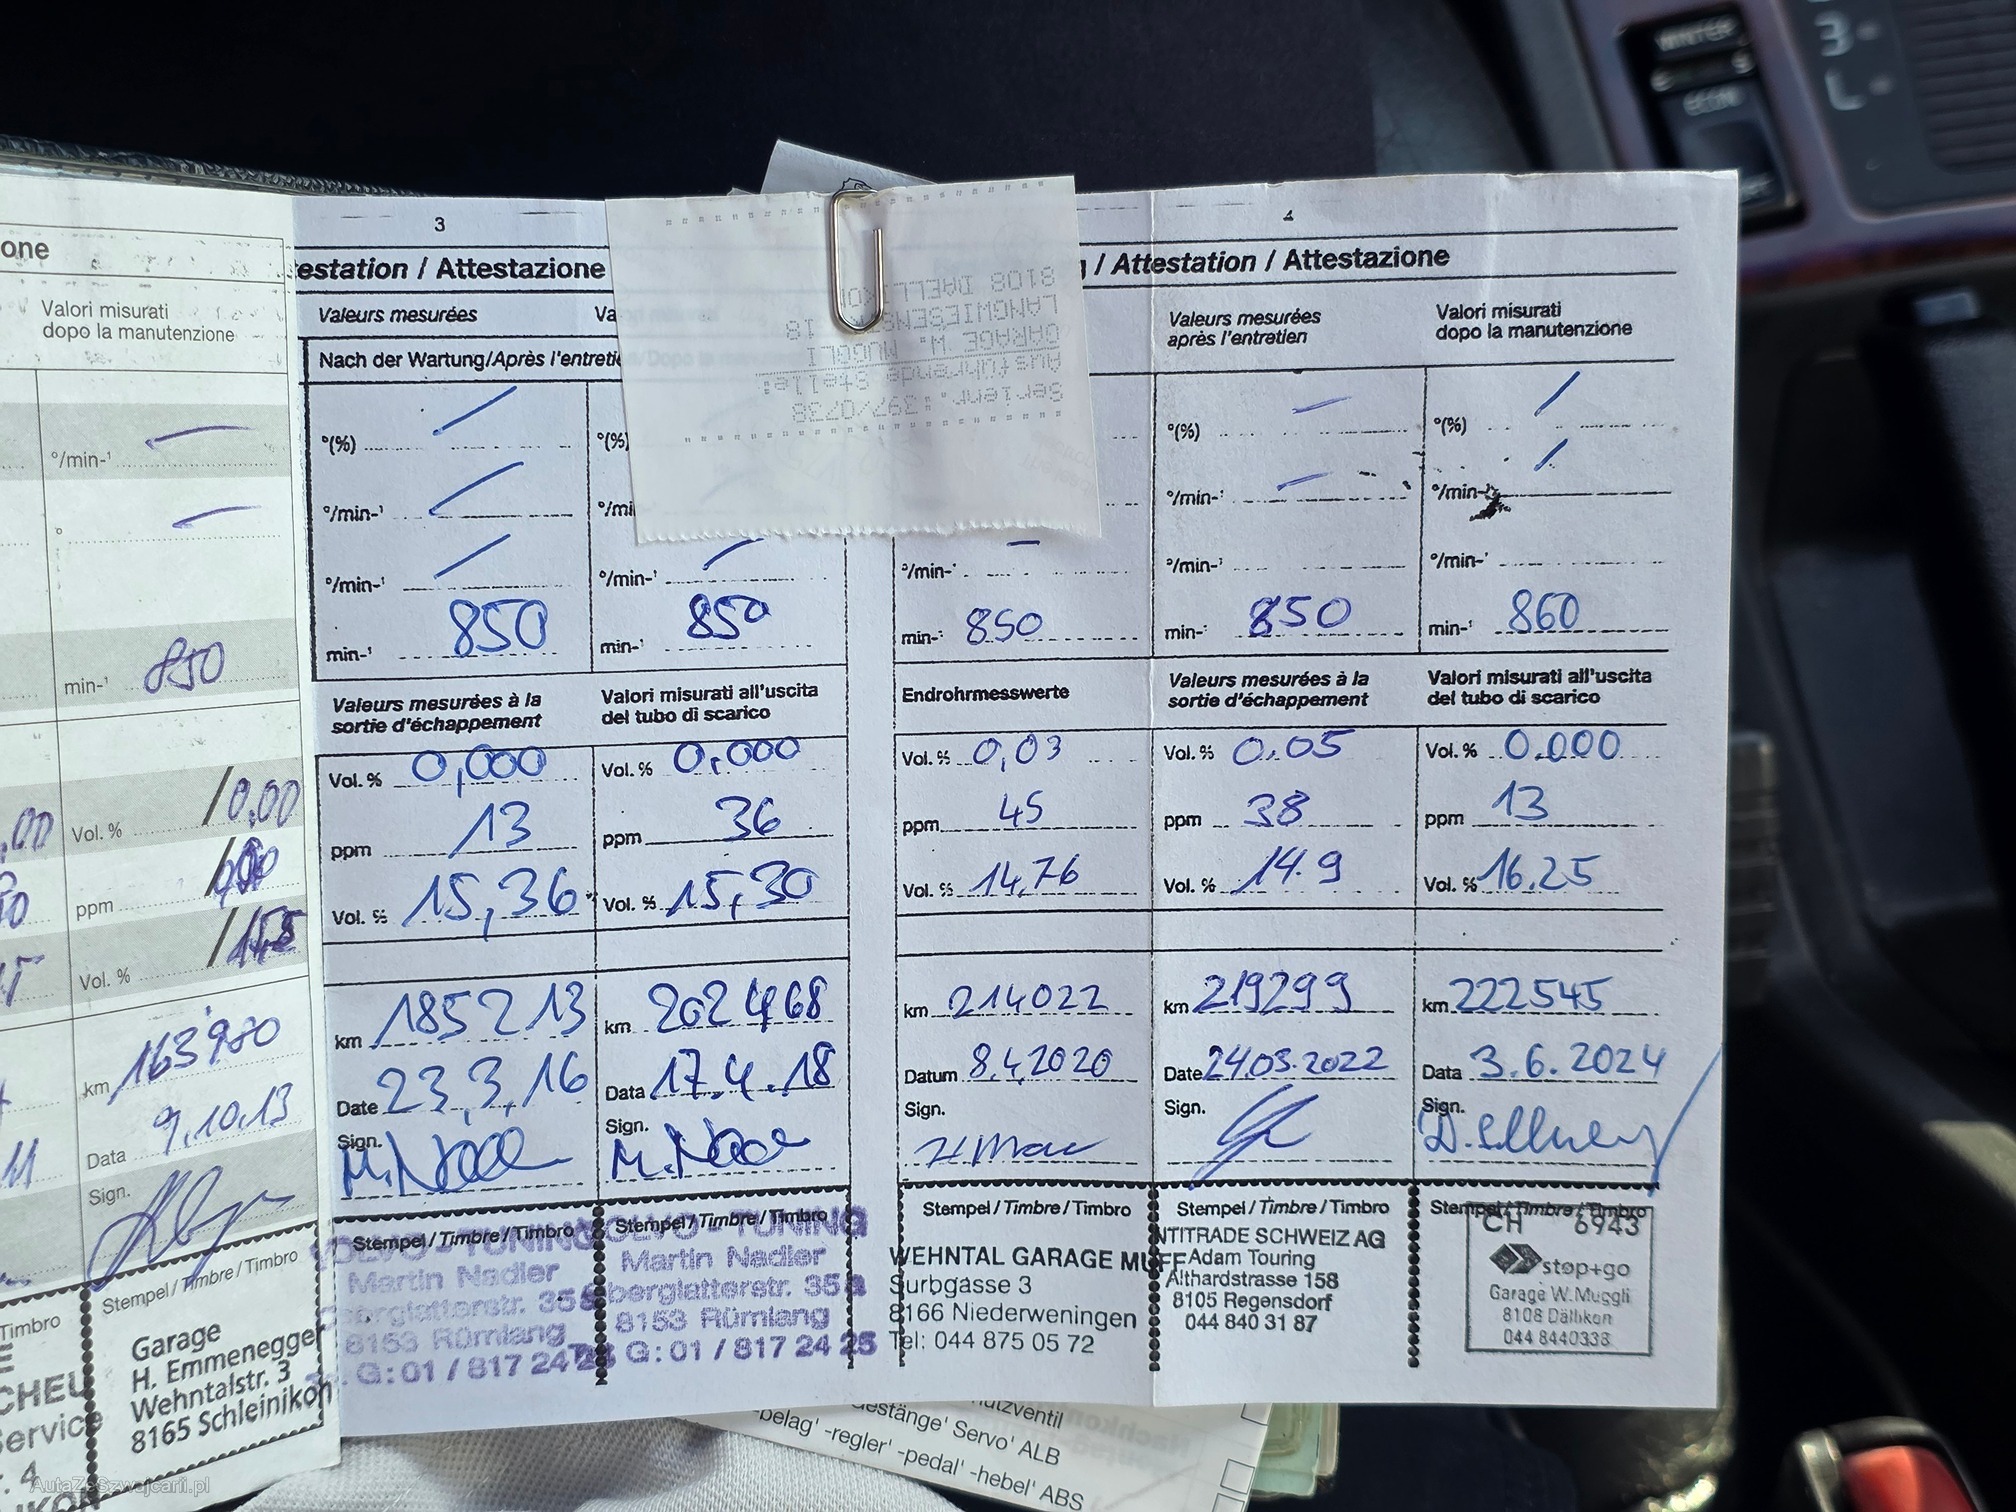 one
Valori misurati
dopo la manutenzione
°/min-¹
°
min-¹ 850
Vol. % /0.00
ppm
Vol. %
km 163980
Data 9.10.13
Sign.
Stempel / Timbre / Timbro
Garage
H. Emmenegger
Wehntalstr. 3
8165 Schleinikon
Timbro
CHEU
Service
3
estation / Attestazione
Valeurs mesurées
Nach der Wartung/Après l'entretie
°(%)
°/min-¹
°/min-¹
min-¹ 850
Valeurs mesurées à la
sortie d'échappement
Vol. % 0,000
ppm 13
Vol. % 15,36
km 185213
Date 23,3,16
Sign.
Stempel / Timbre / Timbro
VOLVO - TUNING
Martin Nadler
Oberglatterstr. 35a
8153 Rümlang
G: 01 / 817 24 25
°(%)
°/min-¹
min-¹ 850
Valori misurati all'uscita
del tubo di scarico
Vol. % 0,000
ppm 36
Vol. % 15,30
km 202468
Data 17.4.18
Sign.
Stempel / Timbre / Timbro
VOLVO - TUNING
Martin Nadler
berglatterstr. 35a
8153 Rümlang
G: 01 / 817 24 25
Serienr.:397/0738
Ausführende Stelle:
GARAGE W. MUGGLI
LANGWIESENST 18
8108 DAELLIKON
4
/ Attestation / Attestazione
°/min-¹
min-¹ 850
Endrohrmesswerte
Vol. % 0,03
ppm 45
Vol. % 14,76
km 214022
Datum 8.4.2020
Sign.
Stempel / Timbre / Timbro
WEHNTAL GARAGE MUFF
Surbgasse 3
8166 Niederweningen
Tel: 044 875 05 72
Valeurs mesurées
après l'entretien
°(%)
°/min-¹
°/min-¹
min-¹ 850
Valeurs mesurées à la
sortie d'échappement
Vol. % 0.05
ppm 38
Vol. % 14.9
km 219299
Date 24.03.2022
Sign.
Stempel / Timbre / Timbro
NTITRADE SCHWEIZ AG
Adam Touring
Althardstrasse 158
8105 Regensdorf
044 840 31 87
Valori misurati
dopo la manutenzione
°(%)
°/min-¹
°/min-¹
min-¹ 860
Valori misurati all'uscita
del tubo di scarico
Vol. % 0.000
ppm 13
Vol. % 16.25
km 222545
Data 3.6.2024
Sign.
Stempel / Timbre / Timbro
CH 6943
stop+go
Garage W. Muggli
8108 Dällikon
044 8440338
utzventil
estänge' Servo' ALB
belag' -regler' -pedal' -hebel' ABS
WINTER
ECON
3
L
AutaZeSzwajcarii.pl